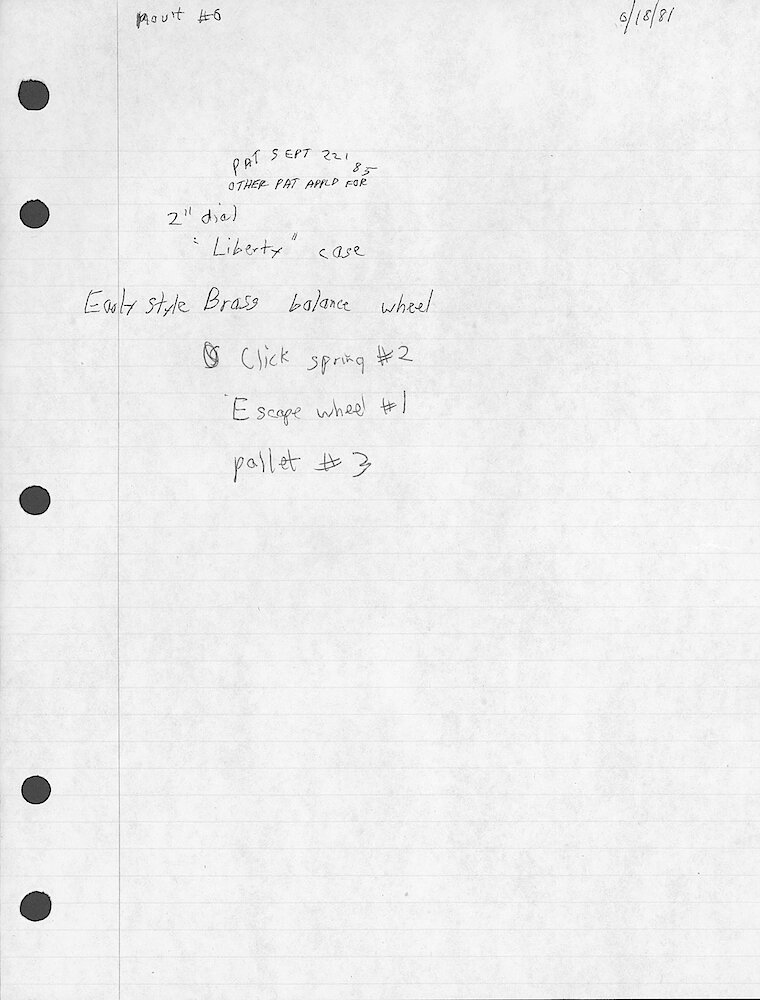 Mov't #6 6/18/81
PAT SEPT 22 1
85
OTHER PAT APPLD FOR
2" dial
"Liberty" case
Early style Brass balance wheel
Click spring #2
Escape wheel #1
pallet #3